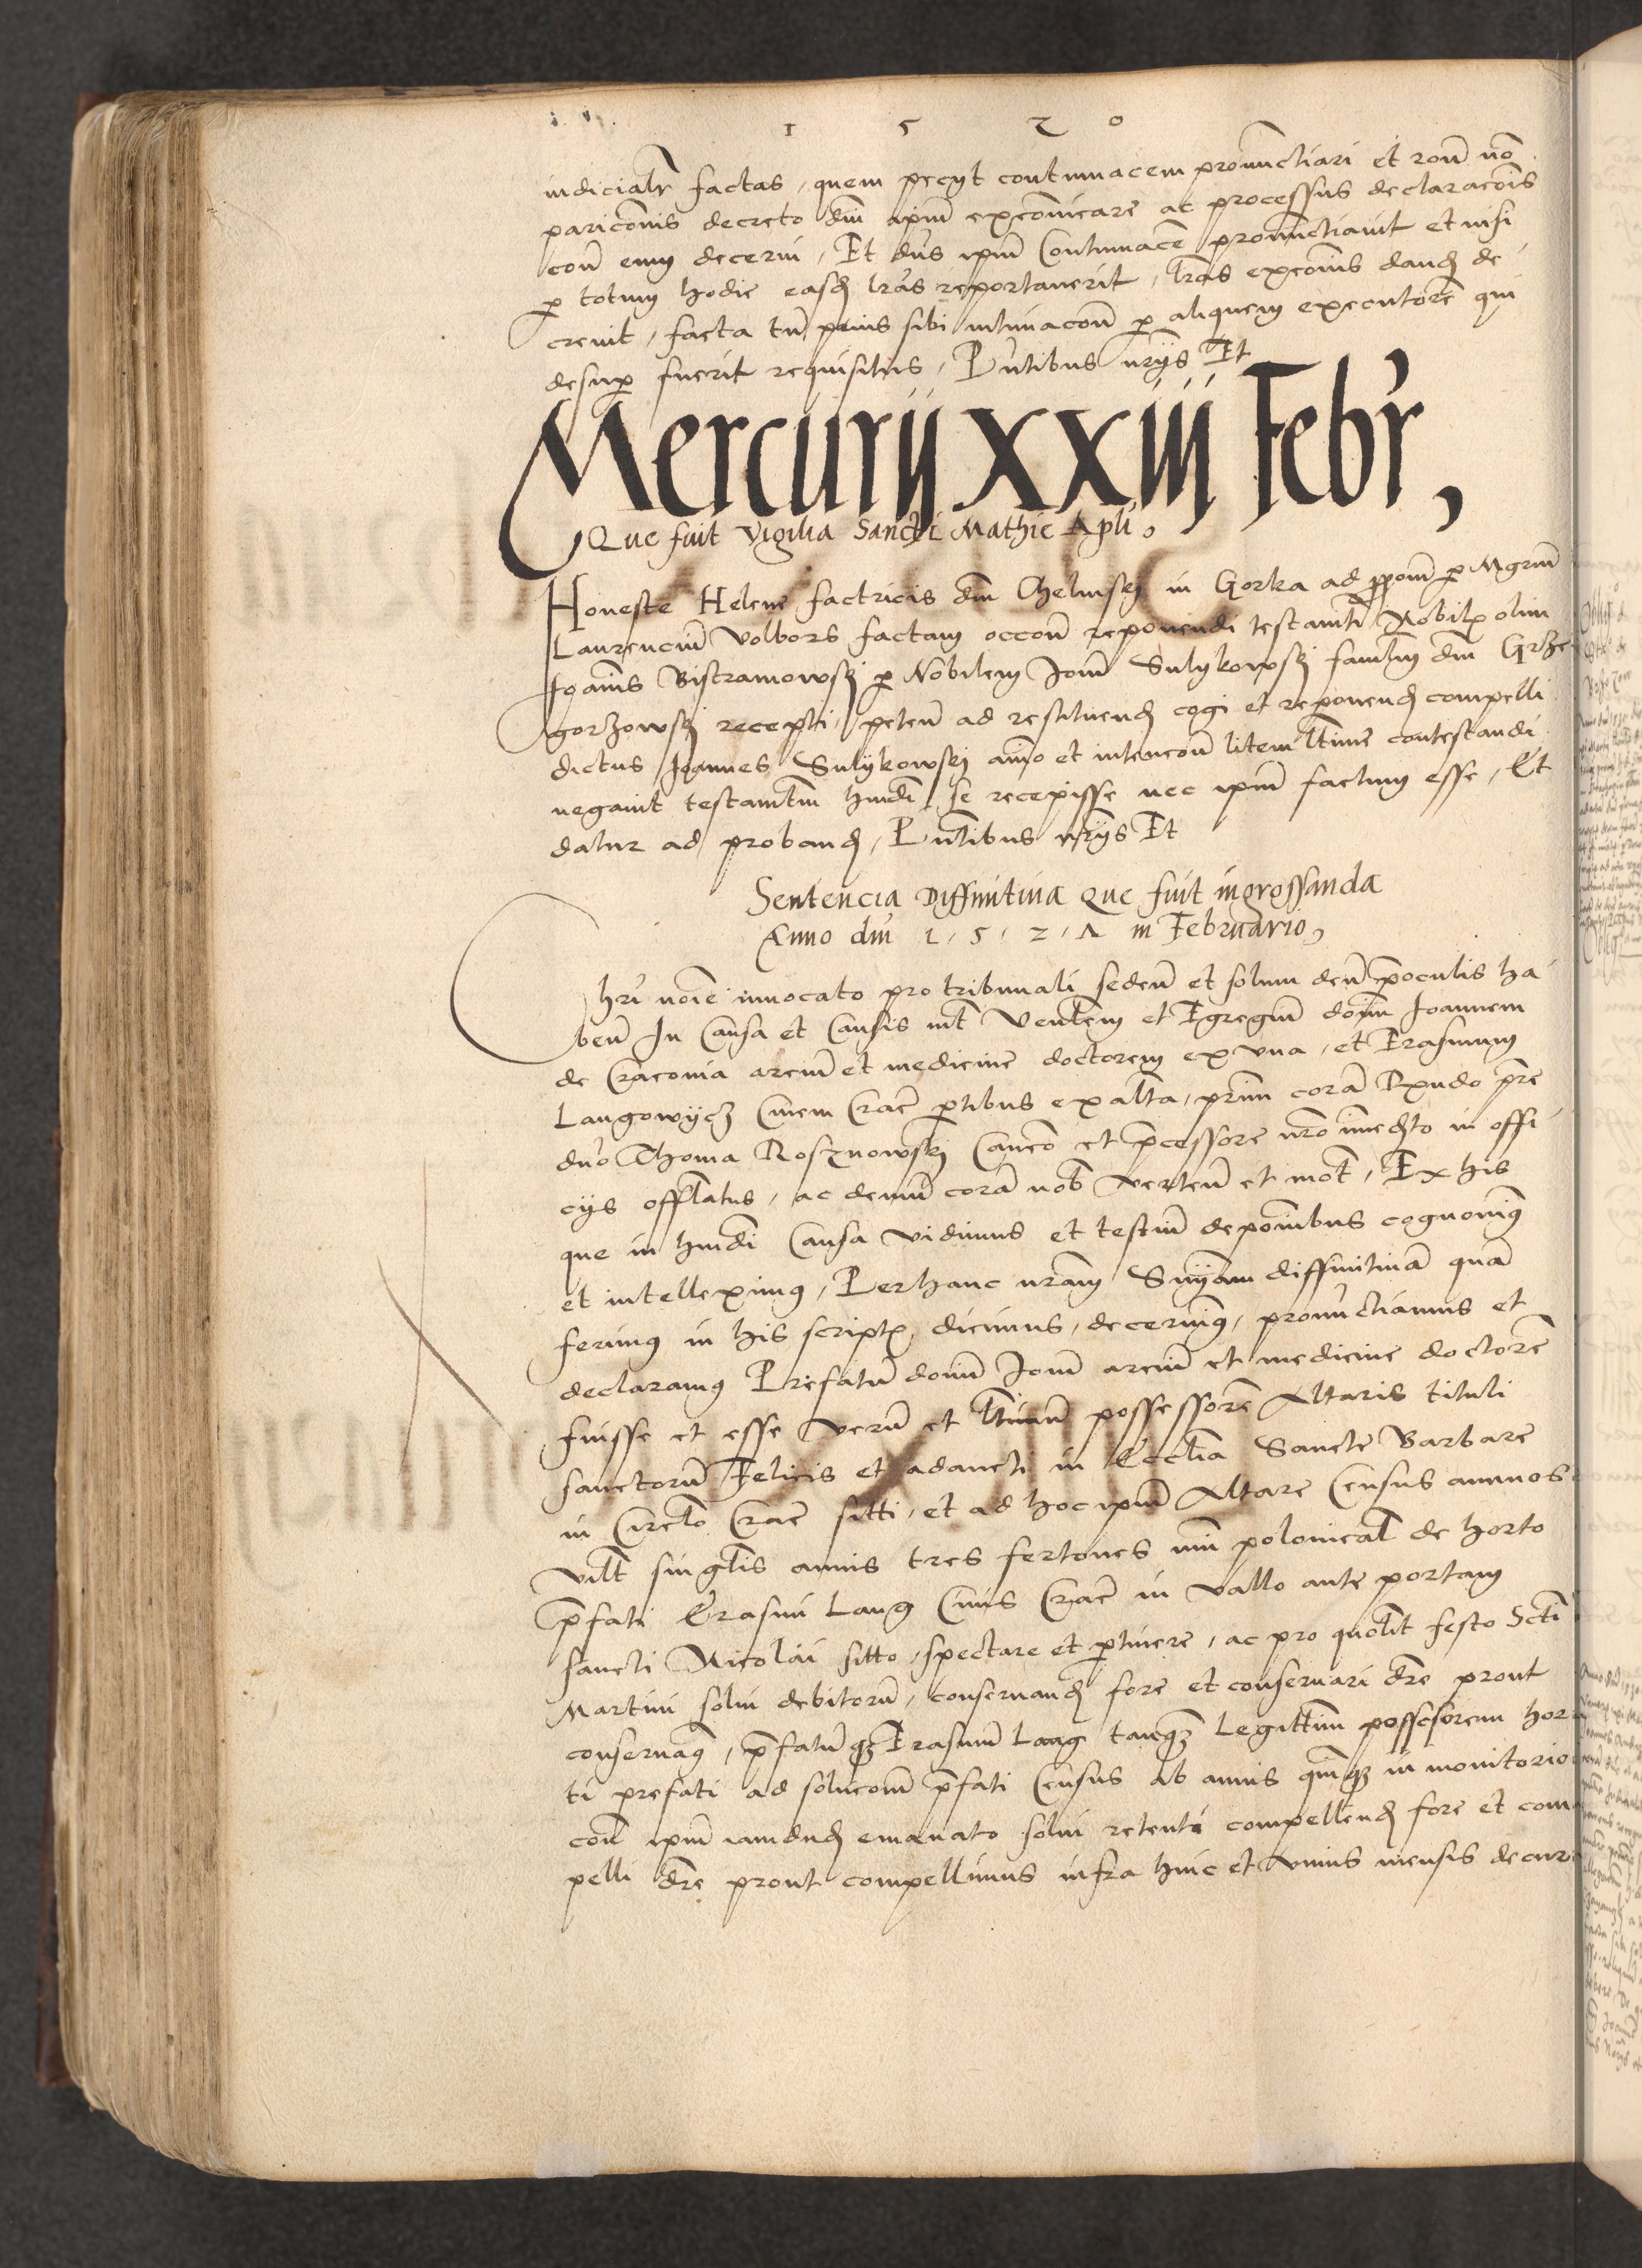 1 5 2 0
iudicialr factas, quem pecyt contumacem pronunctiari et roun no
paricionis decreto dni ipum excoicare ac processus declaracois
con eum decerni, Et dns ipum Contumace pronunctiavit et nisi
p totum hodie easd lras reportaverit, lras excois dand de
crevit, facta tn prius sibi intimacon p aliquem executore qui
desup fuerit requisitus, Pntibus uryis Et
Mercurij xxiij Febr,
Que fuit Vigilia Sancti Mathie Apli,
Honeste Helene factricis dni Chelmskj in Gorka ad pponi p Mgrum
Laurencium Volbors factam occon reponendi testamti Nobilis olim
Joanis Bistramowskj p Nobilem Joan Sulykowskj familum dni Grze
gorzowskj recepti, peten ad restituend cogi et reponend compelli
dictus Joannes Sulykowskj aio et intencon litem ltime contestandi
negavit testamtum hmodi se recepisse nec ipum factum esse, Et
datur ad proband, Pntibus uryis Et
Sentencia Diffinitiva que fuit ingrossanda
Anno dni 1.5.2.1 in Februario,
Chri noie invocato pro tribunali seden et solum deum pre oculis ha
ben In Causa et Causis int Venlem et Egregium dominum Joannem
de Cracovia arcium et medicine doctorem ex una, et Erasmum
Langowycz Civem Crac ptibus ex alta, primu cora Rxndo pre
dno Thoma Rosznowskj Canco et pcessore nro imediato in offi
cijs offlatus, ac demum cora nob verten et mot, Ex his
que in hmodi Causa vidimus et testium deponibus cognovimus
et intelleximus, Per hanc nram Sniam diffinitiva qua
ferimus in his scriptis, dicimus, decernimus, pronunctiamus et
declaramus Prefatu domum Joan arcium et medicine doctore
fuisse et esse veru et ltimum possessore Altaris tituli
sanctorum Felicis et adaucti in Ecclia Sancte Barbare
in Circlo Crac sitti, et ad hoc ipum Altare Census annuos
vilt singlis annis tres fertones mni polonical de horto
pfati Erasmi Lang Civis Crac in vallo ante portam
sancti Nicolai sitto, spectare et ptinere, ac pro quolibt festo Scti
Martini solvi debitorum, conservand fore et conservari dre prout
conservamus, pfatumqz Erasmum Lang tanqz Legittimu possessorem hor
ti prefati ad solucionem pfati Census ab annis quinqz in monitorio
con ipum iamdud emanato solvi retenti compellend fore et com
pelli dre prout compellimus infra hinc et unius mensis decur